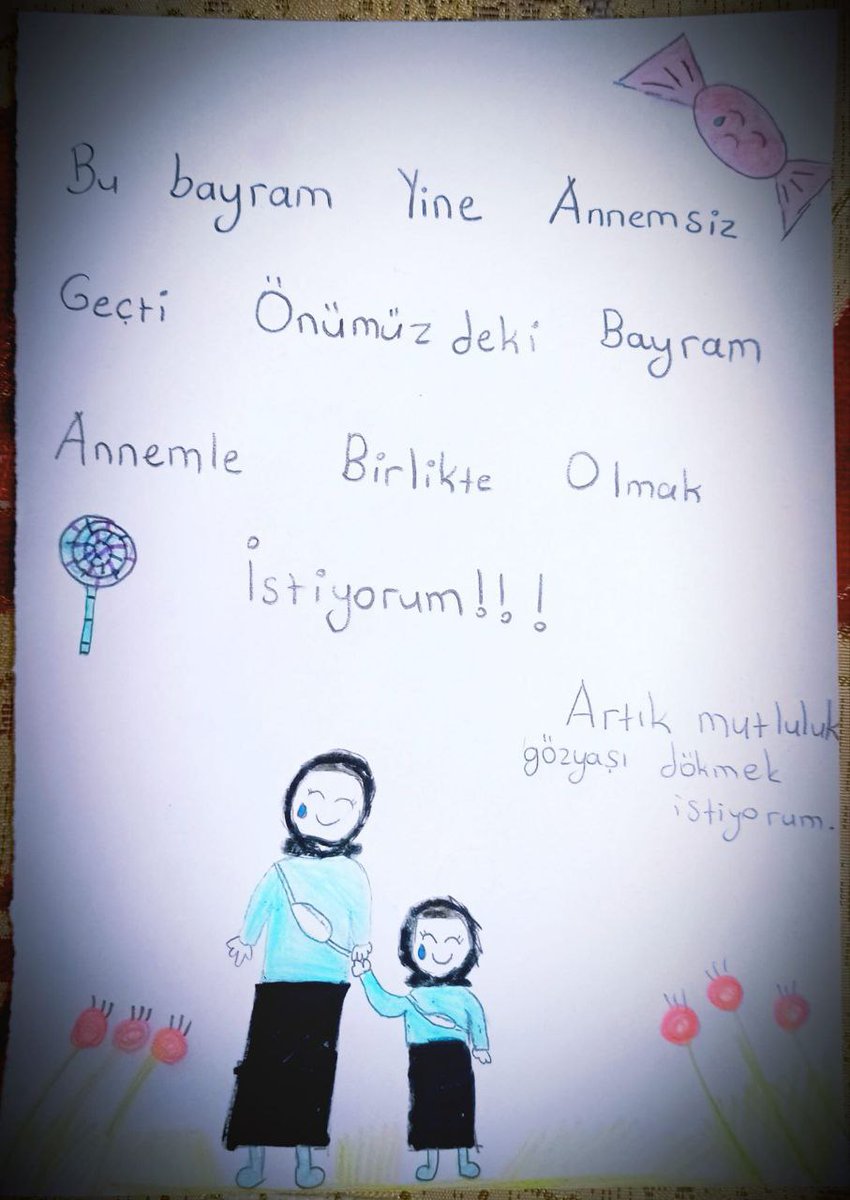 Bu bayram Yine Annemsiz
Geçti Önümüz deki Bayram
Annemle Birlikte Olmak
İstiyorum!!!
Artık mutluluk
gözyaşı dökmek
istiyorum.